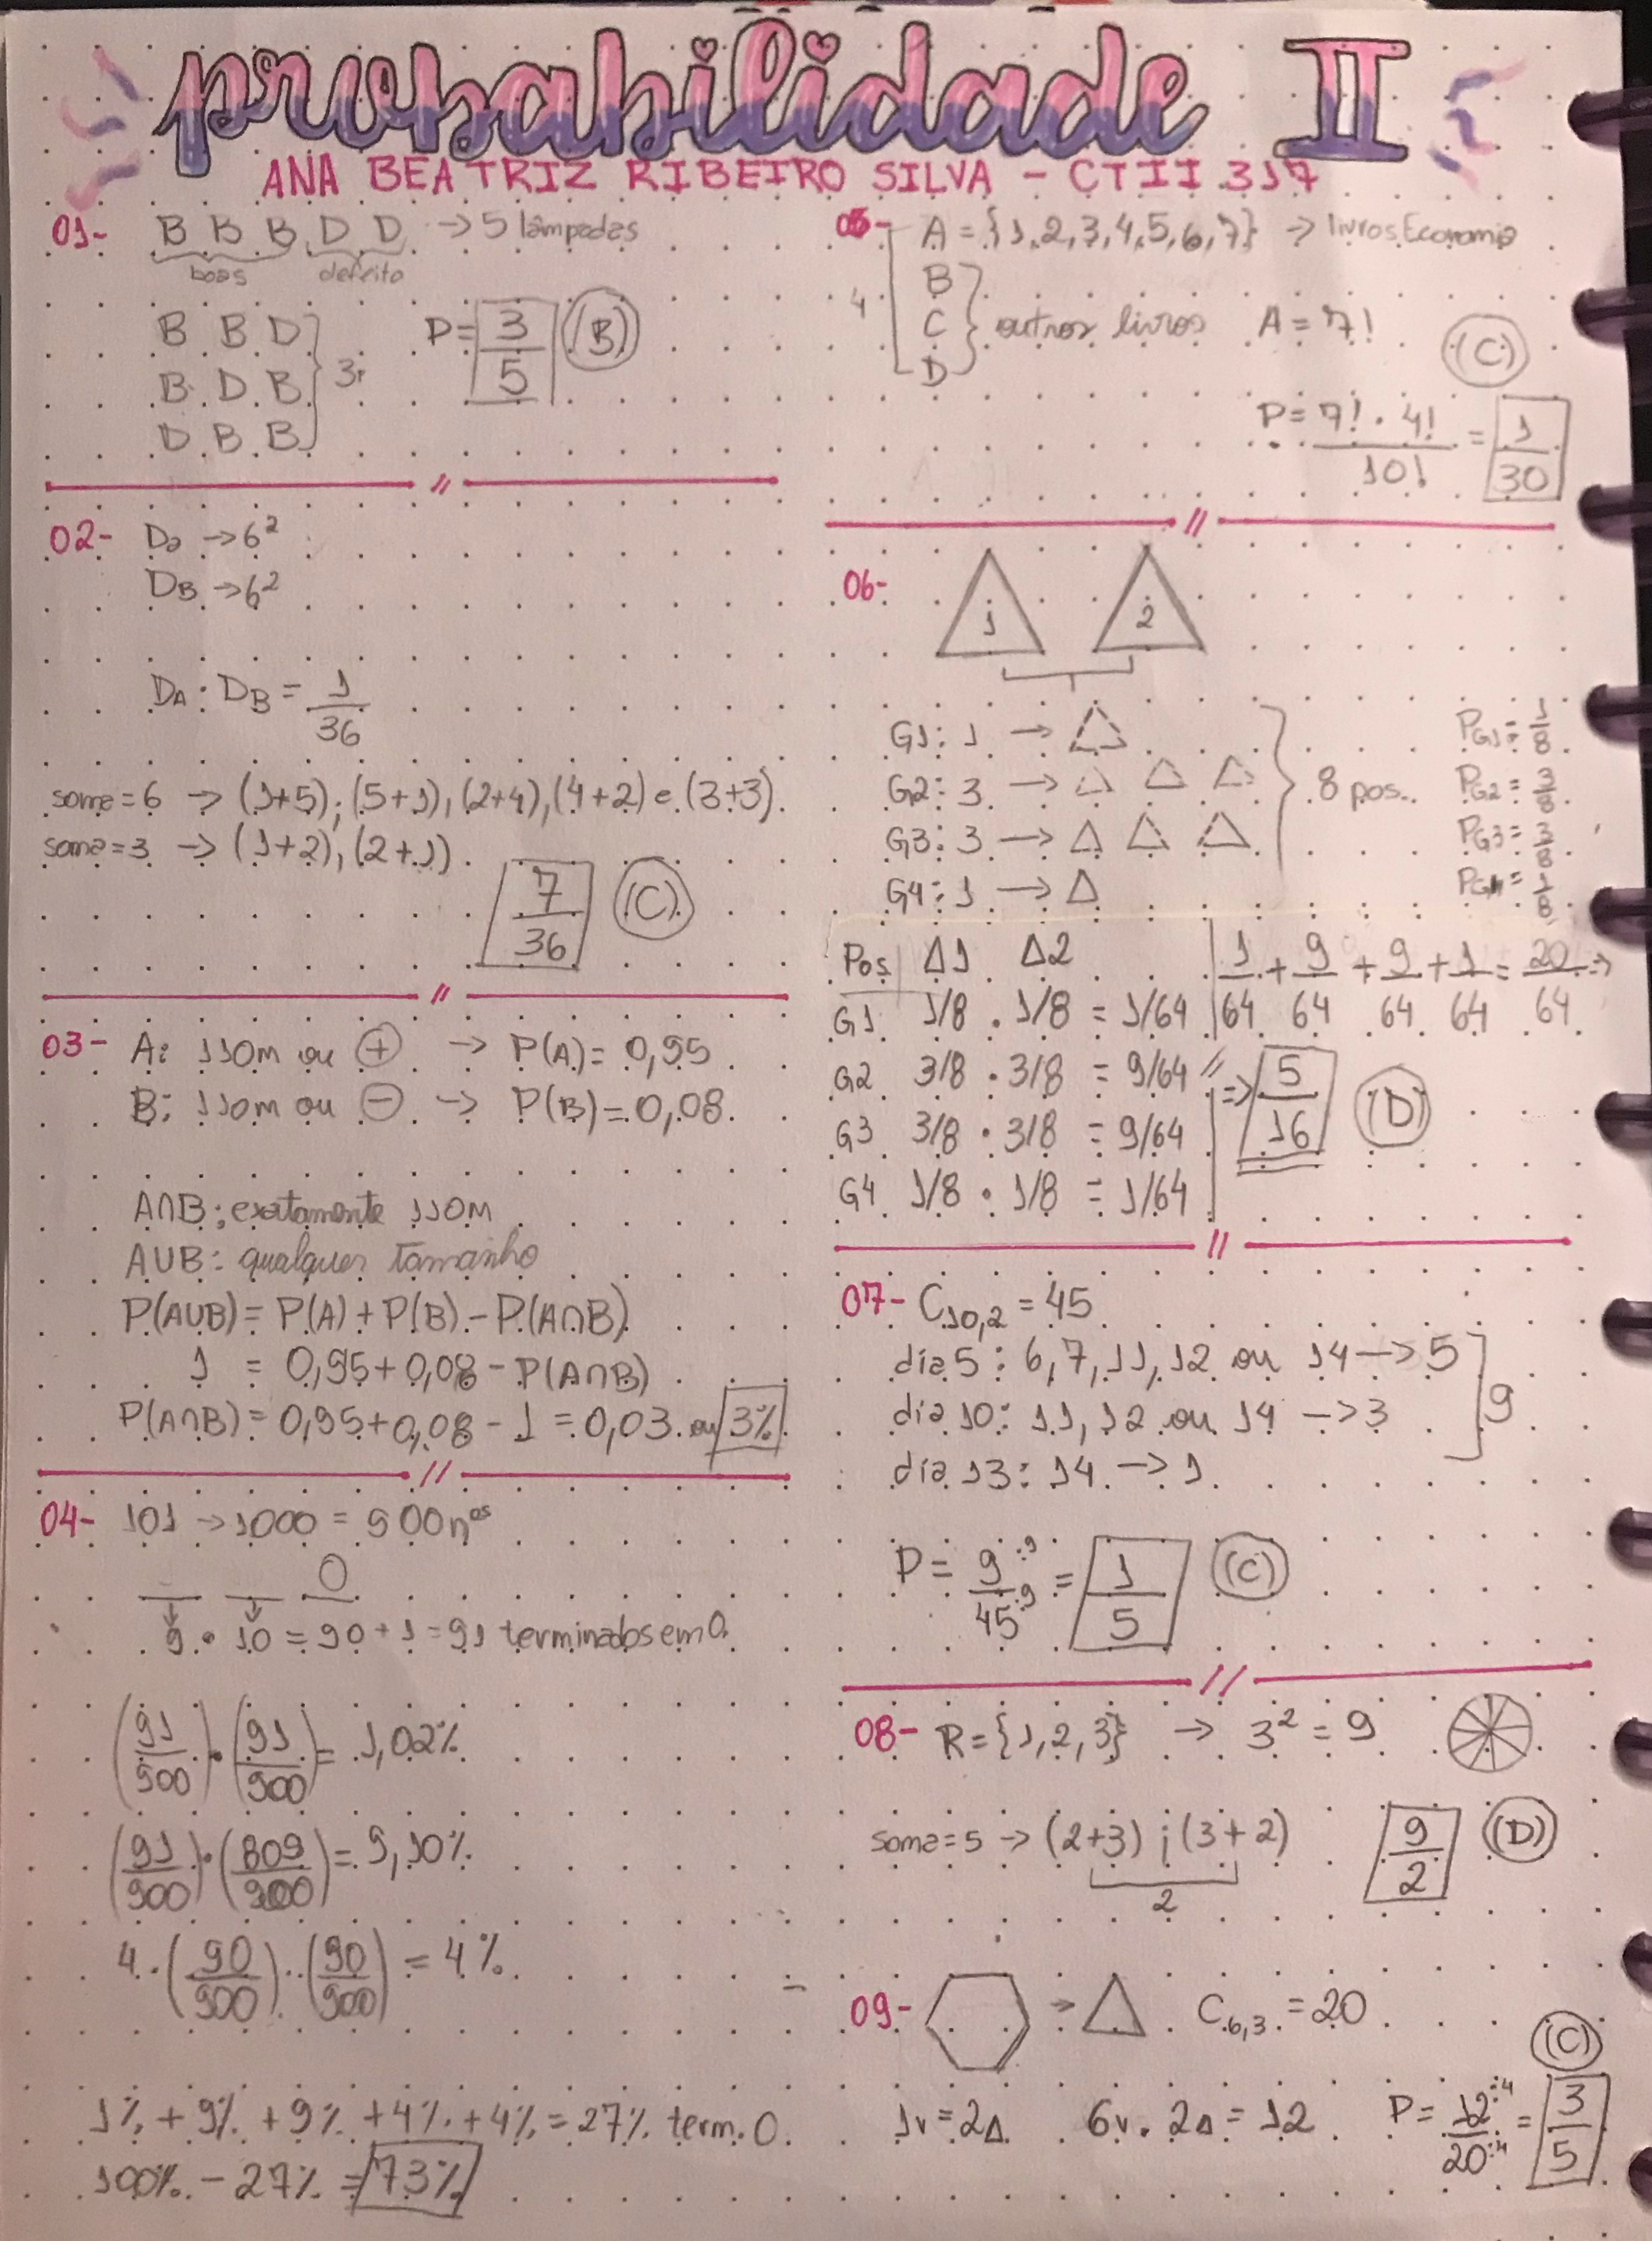 probabilidade II
ANA BEATRIZ RIBEIRO SILVA - CTII 317
01- B B B D D → 5 lâmpadas
boas defeito
B B D
B D B
D B B
3
P = 3/5 (B)
02- DA → 6²
DB → 6²
DA : DB = 1/36
soma = 6 → (1+5); (5+1), (2+4), (4+2) e (3+3)
soma = 3 → (1+2), (2+1)
7/36 (C)
03- A: 110m ou + → P(A) = 0,95
B: 110m ou - → P(B) = 0,08
A∩B: exatamente 110m
A∪B: qualquer tamanho
P(A∪B) = P(A) + P(B) - P(A∩B)
1 = 0,95 + 0,08 - P(A∩B)
P(A∩B) = 0,95 + 0,08 - 1 = 0,03 ou 3%
04- 101 → 1000 = 900 nºs
0
9 . 10 = 90 + 1 = 91 terminados em 0
(91/900) . (91/900) = 1,02%
(91/900) . (809/900) = 9,10%
4 . (90/900) . (90/900) = 4%
1% + 9% + 9% + 4% + 4% = 27% term. 0
100% - 27% = 73%
05- A = {1,2,3,4,5,6,7} → livros Economia
B
C
D
4
outros livros A = 7!
(C)
P = 7! . 4!/10! = 1/30
06- 1 2
G1: 1 →
G2: 3 →
G3: 3 →
G4: 1 →
8 pos.
PG1 = 1/8
PG2 = 3/8
PG3 = 3/8
PG4 = 1/8
Pos Δ1 Δ2
G1 1/8 . 1/8 = 1/64
G2 3/8 . 3/8 = 9/64
G3 3/8 . 3/8 = 9/64
G4 1/8 . 1/8 = 1/64
1/64 + 9/64 + 9/64 + 1/64 = 20/64 ⇒
⇒ 5/16 (D)
07- C10,2 = 45
dia 5: 6, 7, 11, 12 ou 14 → 5
dia 10: 11, 12 ou 14 → 3
dia 13: 14 → 1
9
P = 9:9/45:9 = 1/5 (C)
08- R = {1,2,3} → 3² = 9
soma = 5 → (2+3) ; (3+2)
2
9/2 (D)
09- → Δ C6,3 = 20
(C)
1v = 2Δ 6v . 2Δ = 12 P = 12:4/20:4 = 3/5